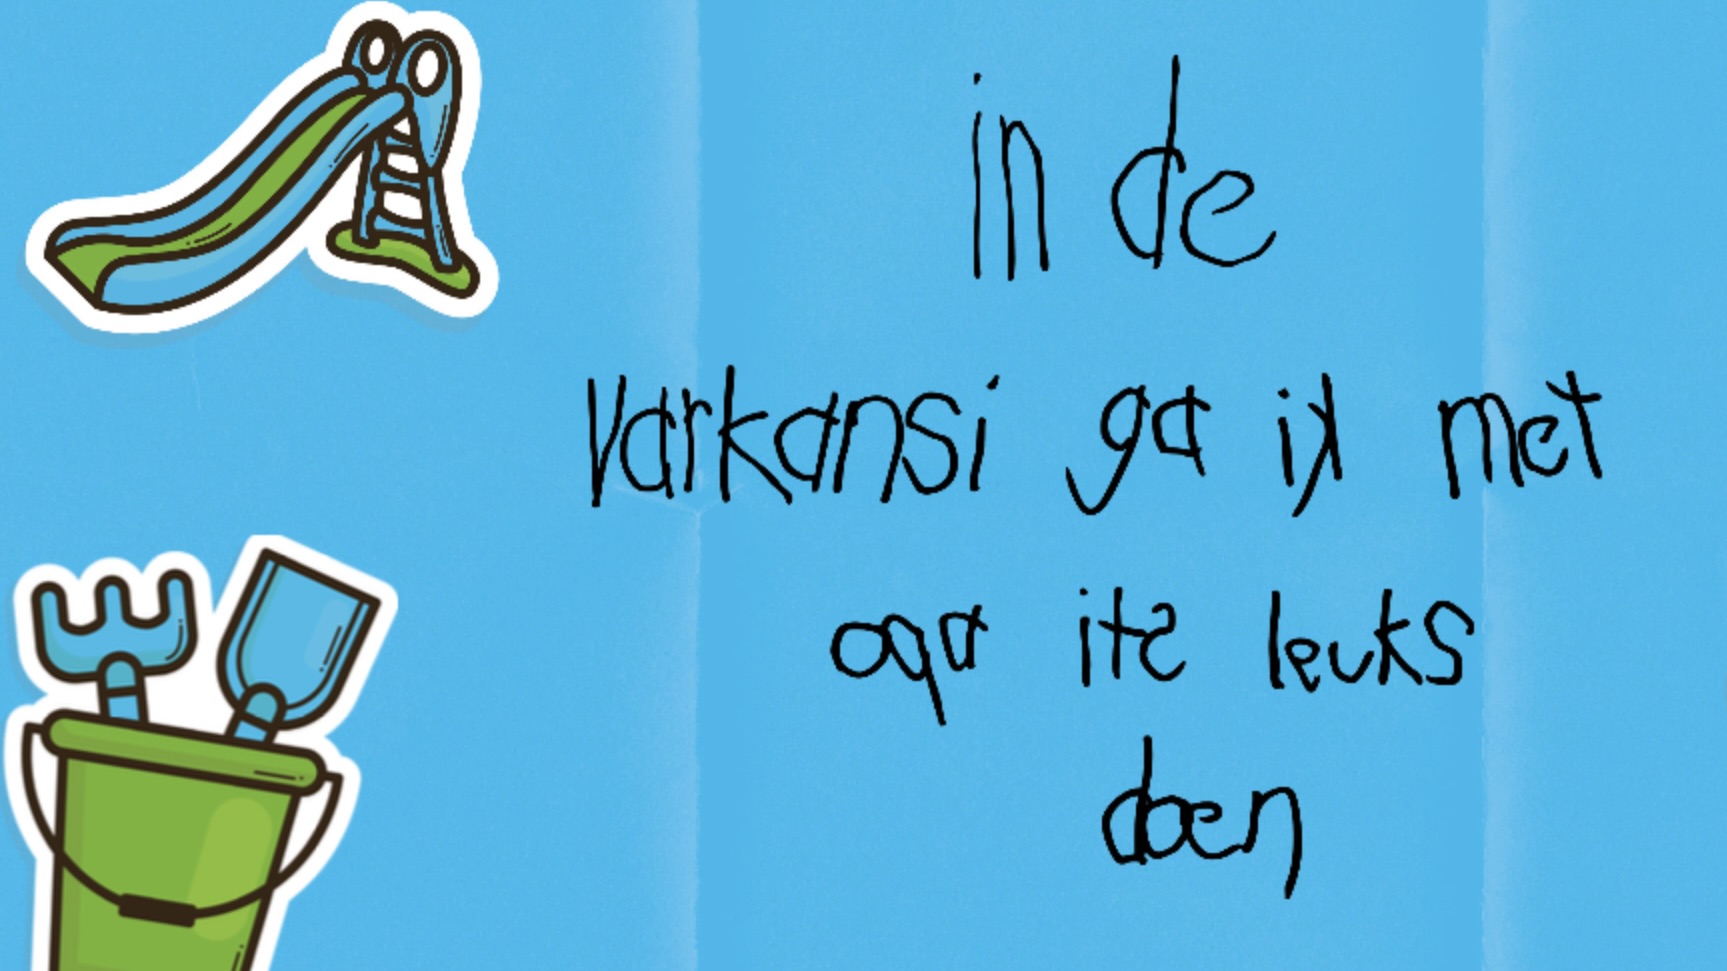 in de
varkansi ga ik met
oqa its leuks
doen